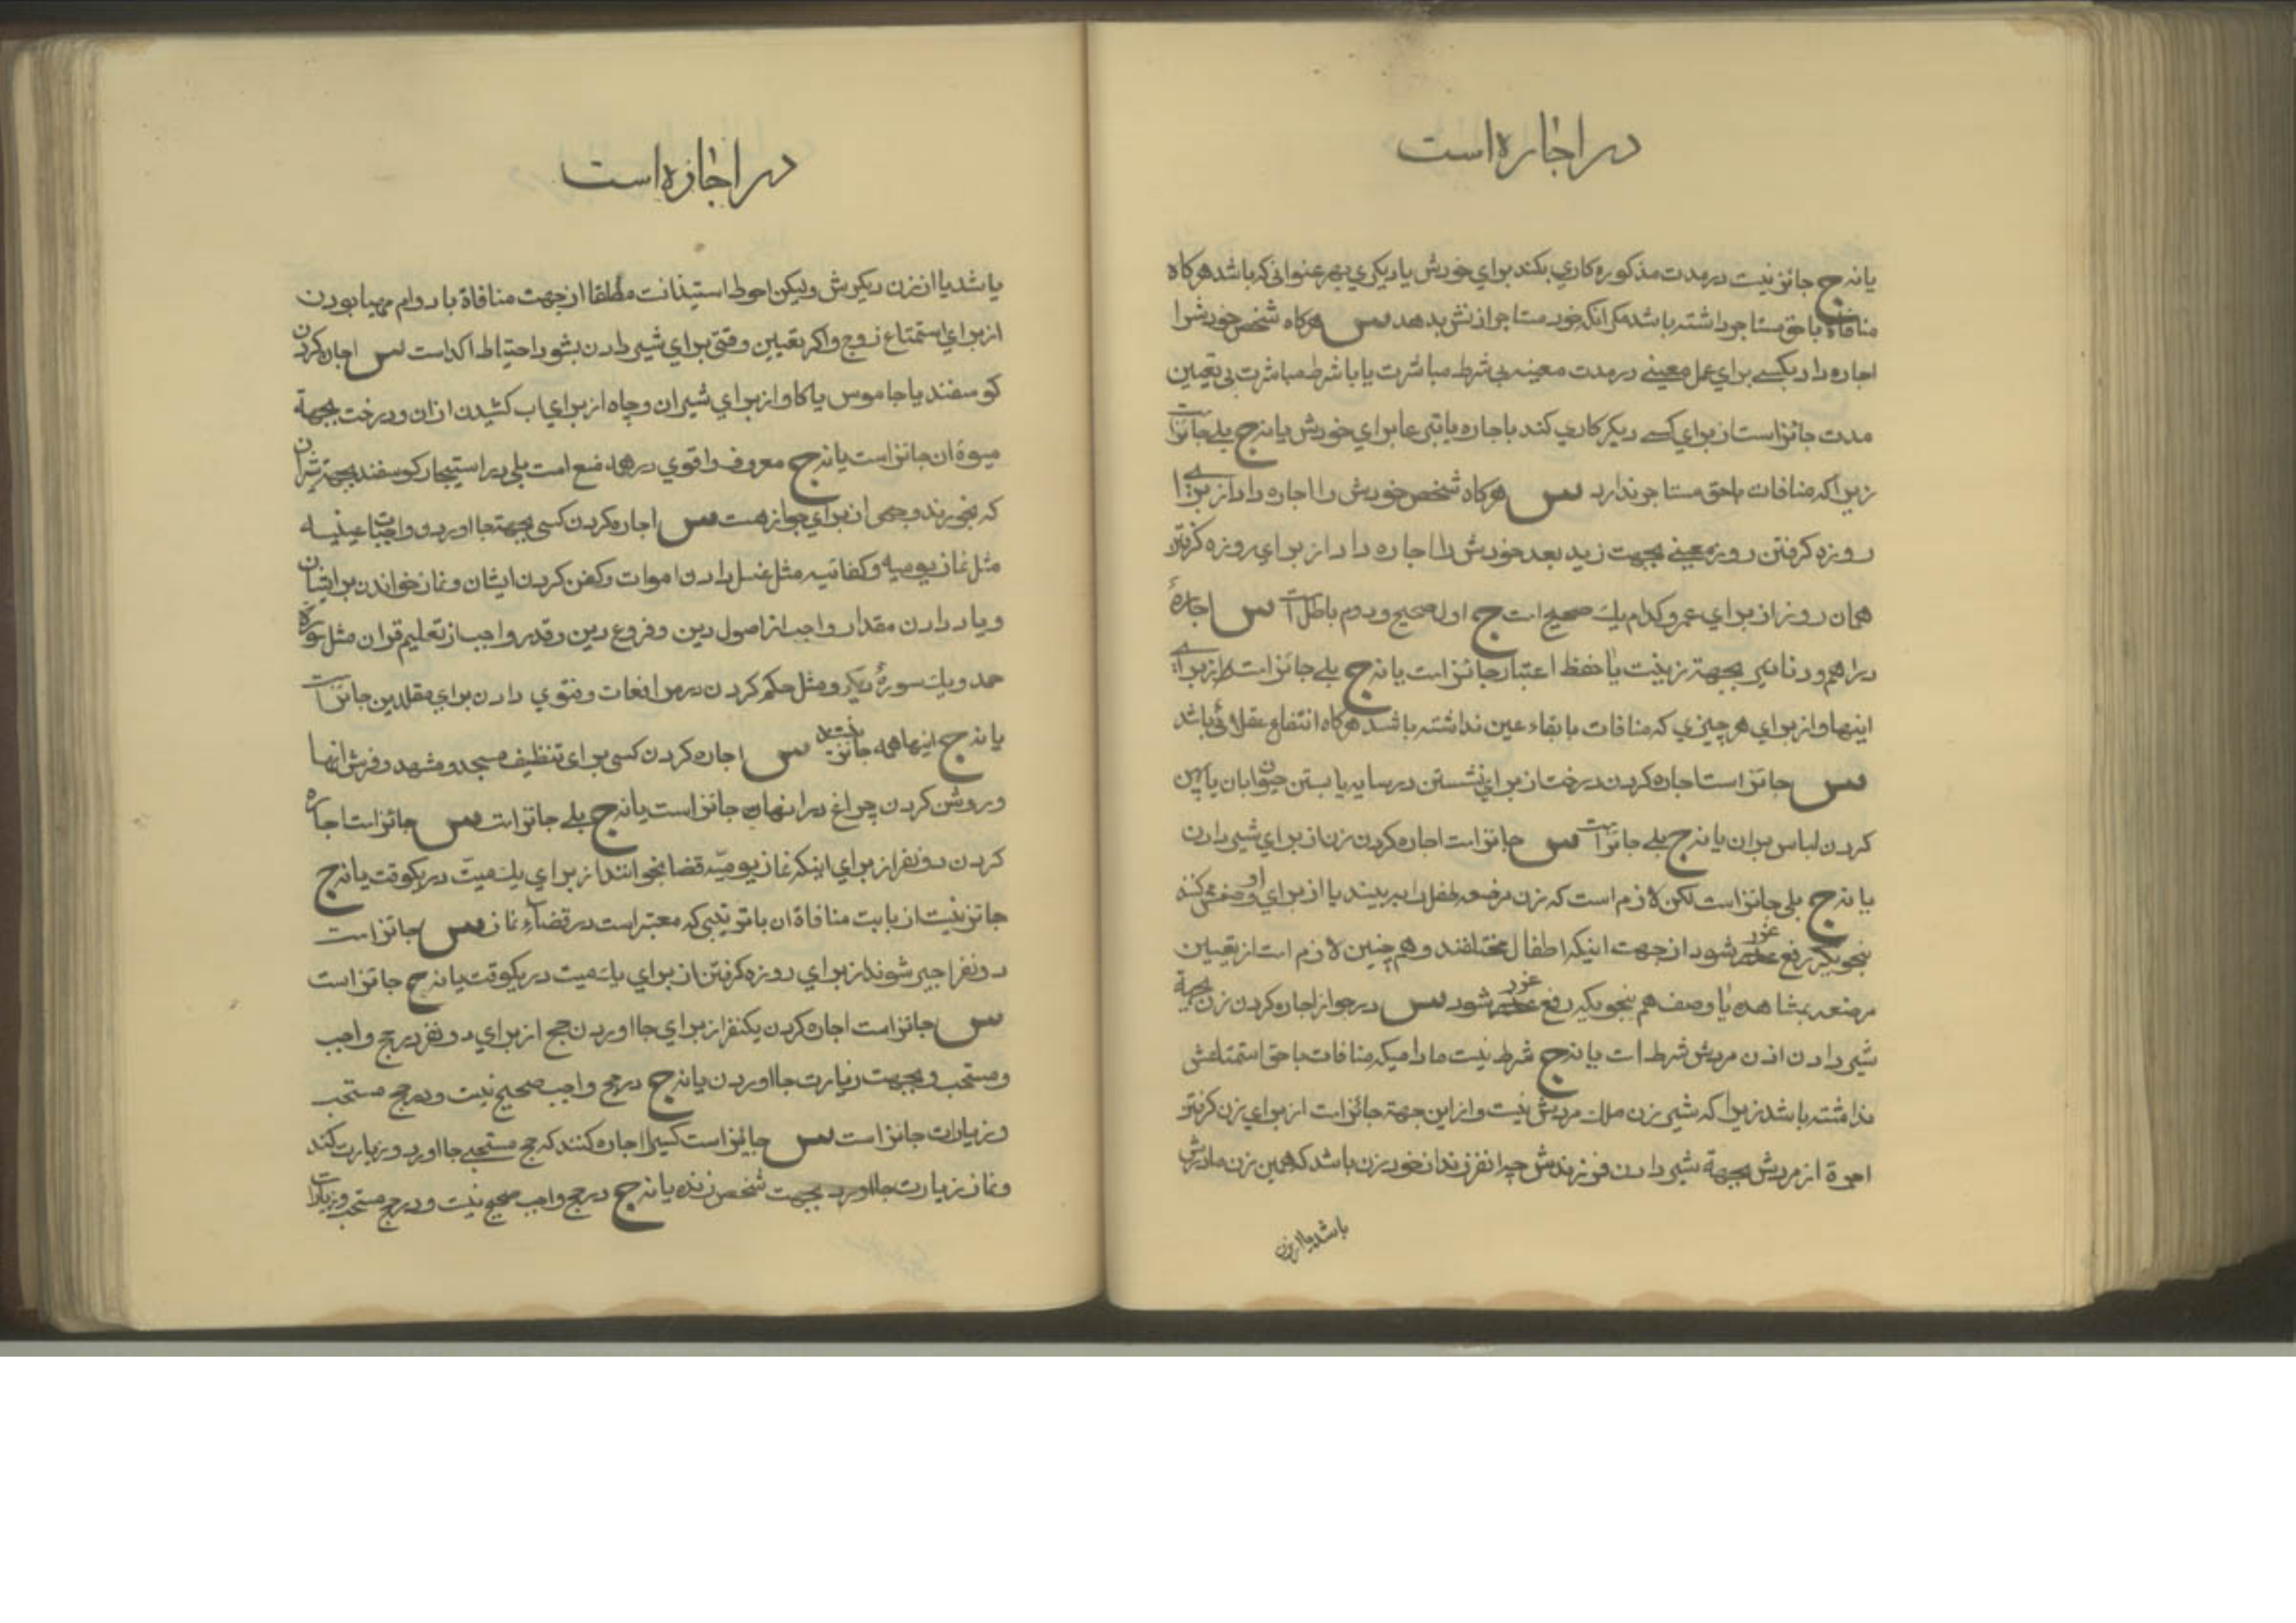 در اجاره است
یا نه ج جائز نیست در مدت مذکوره کاری بکند برای خودش یا دیگری بهر عنوانی که باشد هرکاه
منافاة با حق مستاجر داشته باشد مکر انکه خود مستاجر اذنش بدهد س هرکاه شخص خودش را
اجاره داد بکسے برای عمل معینے در مدت معینه بی شرط مباشرت یا با شرط مباشرت بی تعیین
مدت جائز است از برای کسے دیکر کاری کند باجاره یا تبرعا برای خودش یا نه ج بلے جائز است
زیرا که منافات با حق مستاجر ندارد س هرکاه شخص خودش را اجاره داد از برای
روزه کرفتن روز معینے بجهت زید بعد خودش را اجاره داد از برای روزه کرفتن
همان روز از برای عمرو کدام یك صحیح است ج اول صحیح و دوم باطل است س اجارهٔ
دراهم و دنانیر بجهة زینت یا حفظ اعتبار جائز است یا نه ج بلے جائز است از برای
اینها و از برای هر چیزی که منافات با بقاء عین نداشته باشد هرکاه انتفاع عقلائی باشد
س جائز است اجاره کردن درخت از برای نشستن در سایه یا بستن حیوان بان یا پهن
کردن لباس بران یا نه ج بلے جائز است س جائز است اجاره کردن زن از برای شیر دادن
یا نه ج بلی جائز است لکن لازم است که زن مرضعه طفل را ببیند یا از برای او وصفش کنند
بنحویکه رفع غرر شود از جهت اینکه اطفال مختلفند و هم چنین لازم است از تعیین
مرضعه بمشاهده یا وصف هم بنحویکه رفع غرر شود س در جواز اجاره کردن زن بجهة
شیر دادن اذن مردش شرط است یا نه ج شرط نیست مادامیکه منافات با حق استمتاعش
نداشته باشد زیرا که شیر زن ملك مردش نیست و از این جهة جائز است از برای زن کرفتن
اجرة از مردش بجهة شیر دادن فرزندش چه انفرزند از خود زن باشد که همین زن مادرش
باشد یا از زن
در اجازه است
یا شد یا از زن دیکرش ولیکن احوط استیذانت مطلقا از جهت منافاة با دوام مهیا بودن
از برای استمتاع زوج و اکر تعیین وقتی برای شیر دادن بشود احتیاط اکد است س اجاره کردن
کوسفند یا جاموس یا کاو از برای شیر ان و چاه از برای اب کشیدن ازان و درخت بجهة
میوهٔ ان جائز است یا نه ج معروف و اقوی در همه منع است بلی در استیجار کوسفند بجهة شیر ان
که بخورند وجهی از برای جواز هست س اجاره کردن کسی بجهة جا اوردن واجبات عینیه
مثل نماز یومیه و کفائیه مثل غسل دادن اموات و کفن کردن ایشان و نماز خواندن بر ایشان
و یاد دادن مقدار واجب از اصول دین و فروع دین و قدر واجب از تعلیم قران مثل سورهٔ
حمد و یك سورهٔ دیکر و مثل حکم کردن در مرافعات و فتوی دادن برای مقلدین جائز است
یا نه ج اینها همه جائز نیست س اجاره کردن کسی برای تنظیف مسجد و مشهد و فرش انها
و روشن کردن چراغ در انها جائز است یا نه ج بلے جائز است س جائز است اجاره
کردن دو نفر از برای اینکه نماز یومیّه قضا بخوانند از برای یك میت در یکوقت یا نه ج
جائز نیست از بابت منافاة ان با ترتیبی که معتبر است در قضآء نماز س جائز است
دو نفر اجیر شوند از برای روزه کرفتن از برای یك میت در یکوقت یا نه ج جائز است
س جائز است اجاره کردن یکنفر از برای جا اوردن حج از برای دو نفر در حج واجب
و مستحب و بجهت زیارت جا اوردن یا نه ج در حج واجب صحیح نیست و در حج مستحب
و زیارات جائز است س جایز است کسیرا اجاره کنند که حج مستحبے جا اورد و زیارت کند
و نماز زیارت جا اورد بجهت شخص زنده یا نه ج در حج واجب صحیح نیست و در حج مستحب و زیارات